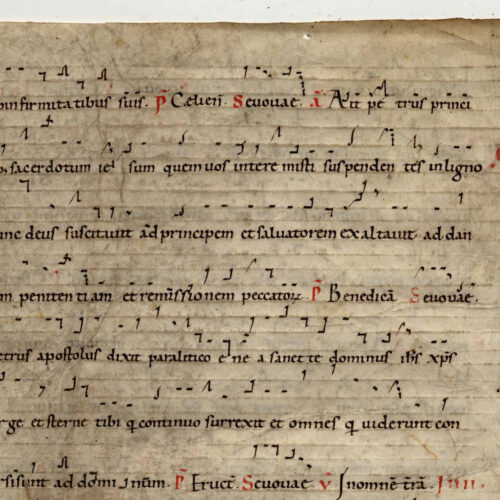 infirmitatibus suis. P̄ Cæli en̄. Seuouae. ā Ait pe trus princi
sacerdotum ie͞ sum quem uos intere misti suspenden tes in ligno
unc deus suscitauit ad principem et saluatorem exaltauit. ad dan
m peniten tiam et remissionem peccatoꝝ. P̄ Benedicā Seuouae.
etrus apostolus dixit paralitico ene a sanet te dominus ih͞s xp͞s
rge et sterne tibi q continuo surrexit et omnes q uiderunt con
sisunt ad domi num. P̄ Eruct̄. Seuouae. V̄ In omnē t̄rā. IIII.